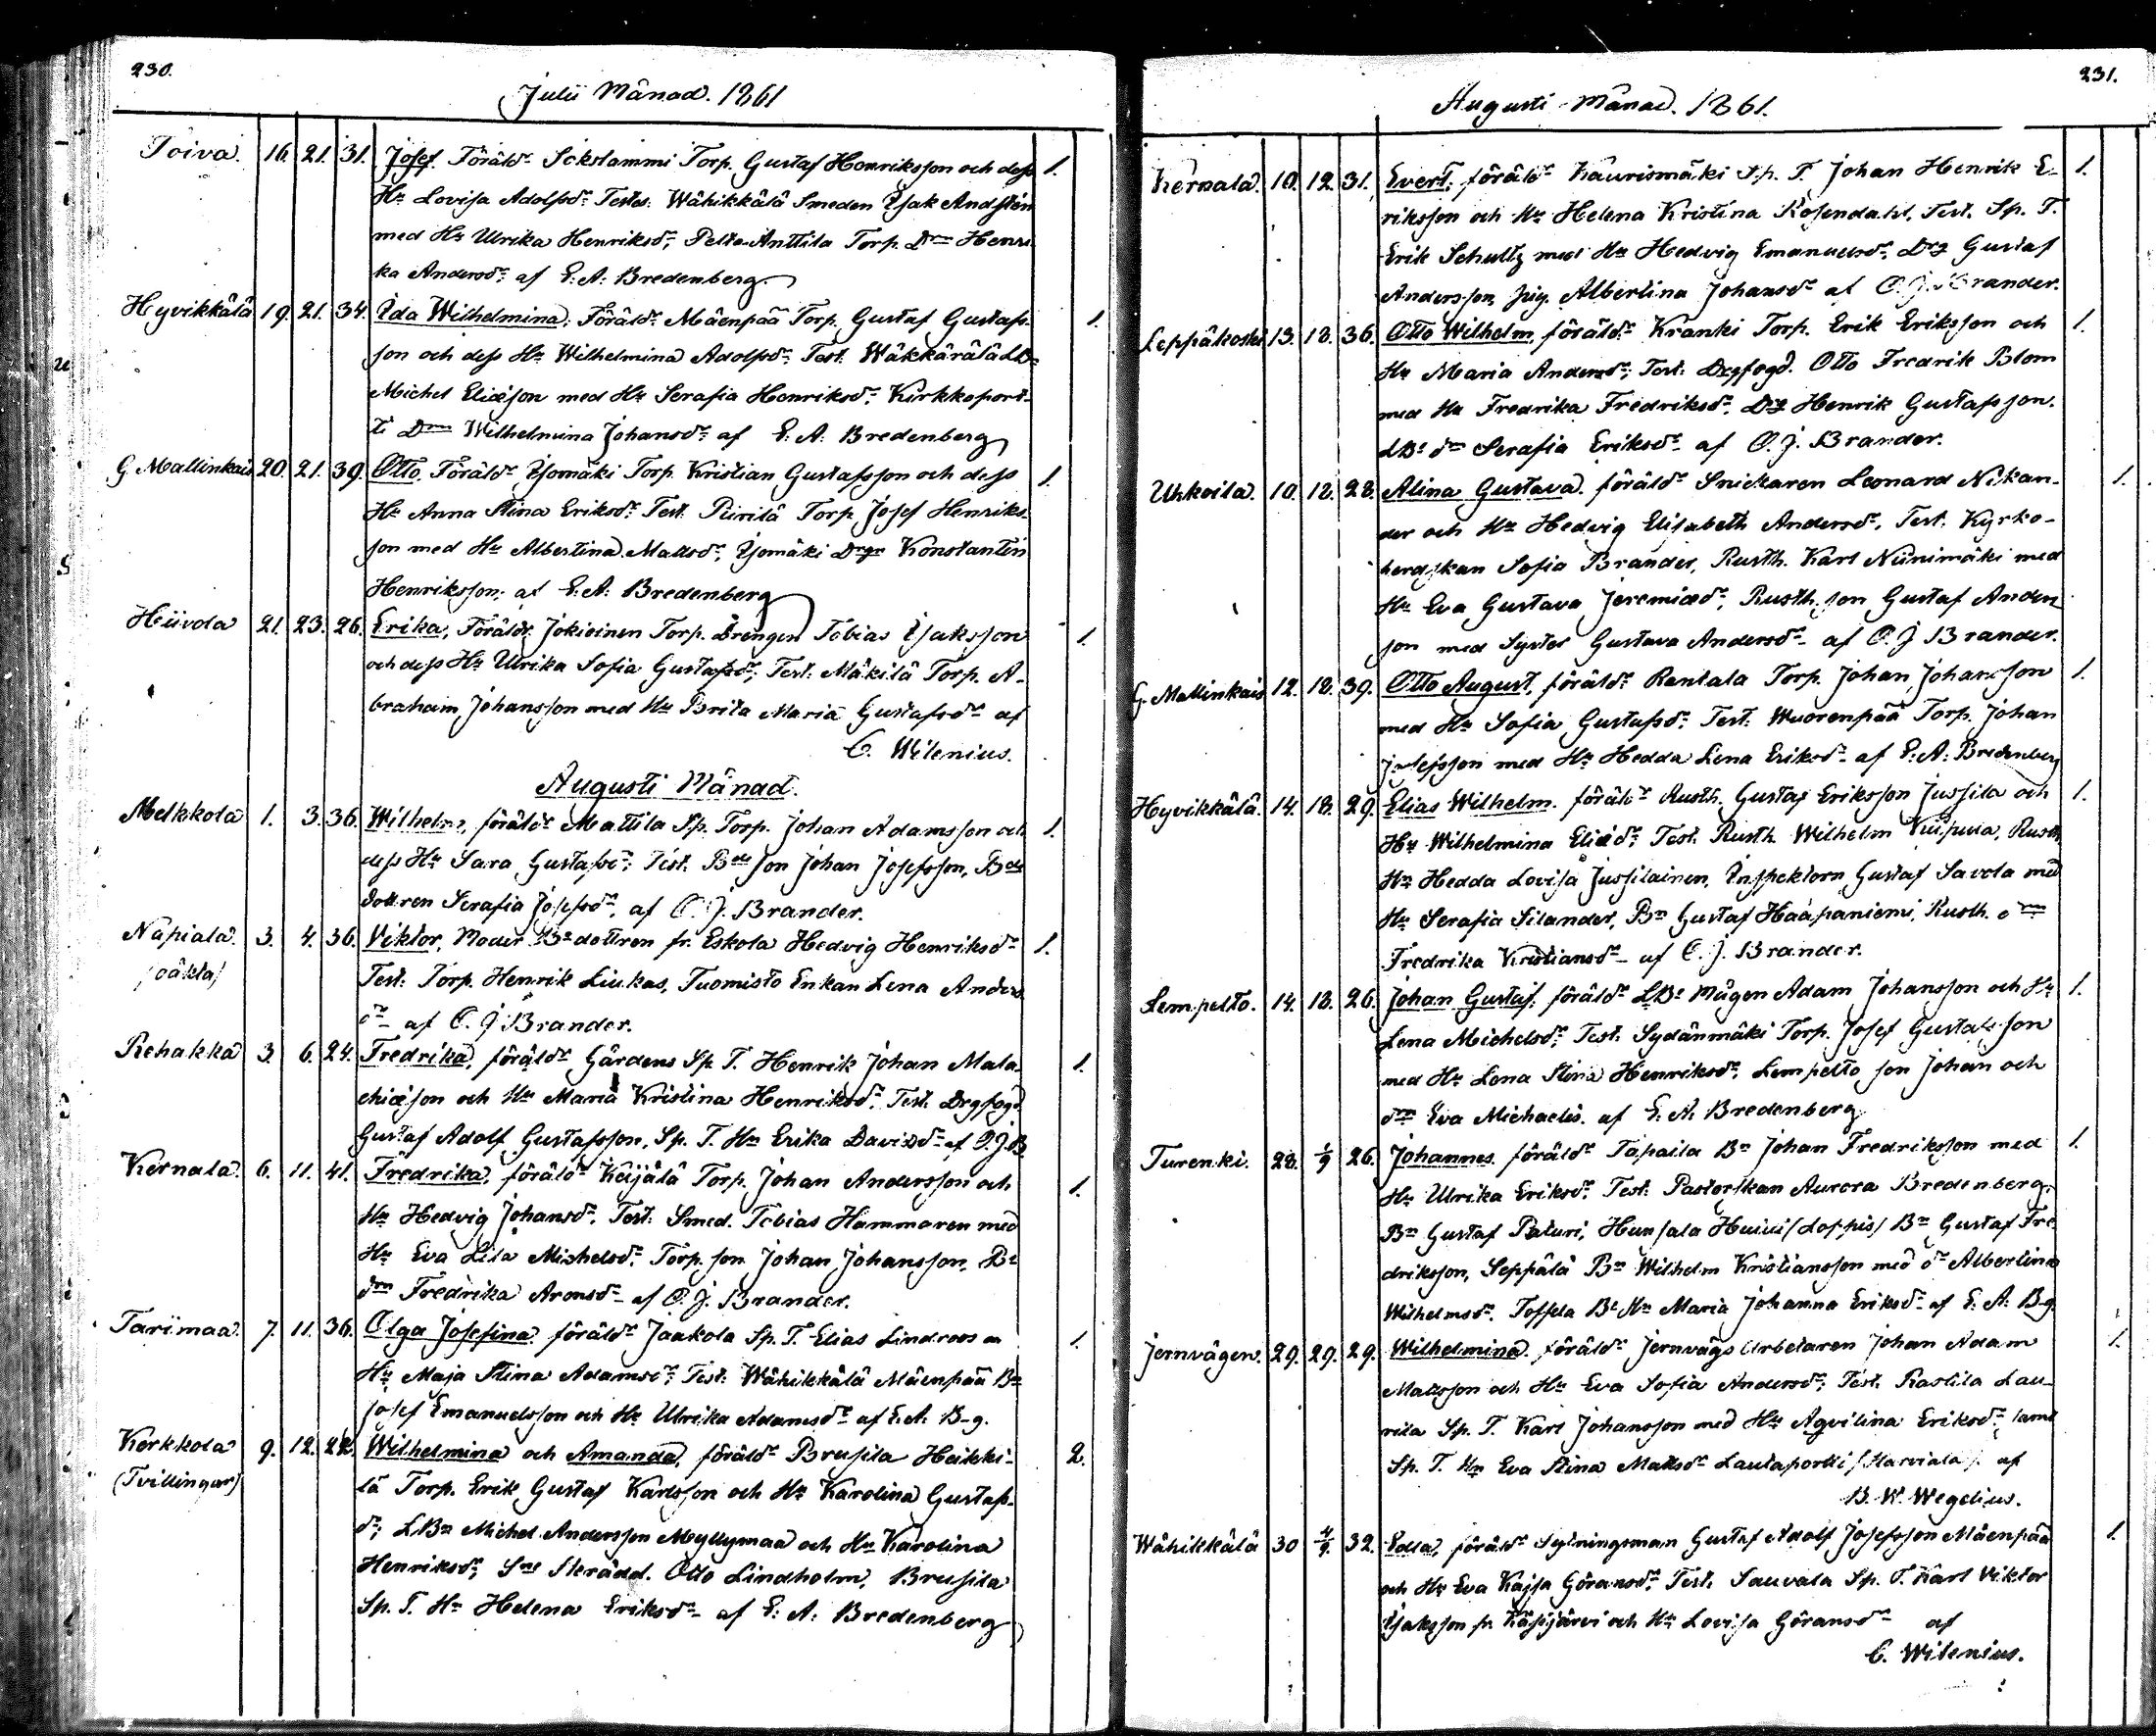 230.
Julii Månad. 1861
Toiva. 16. 21. 31. Josef. Föräldr Torp. Gustaf Henriksson och dess 1.
Hu Lovisa Adolfsdr. Testes: Wähikkälä Smeden Isak
med Hu Ulrika Henriksdr, Pelto-Anttila Torp. Drn Henri-
ka Andersdr. af E. A. Bredenberg.
Hyvikkälä 19. 21. 34. Ida Wilhelmina. Föräldr. Mäenpää Torp. Gustaf Gustafs- 1.
son och dess Hu Wilhelmina Adolfsdr. Test.
Michel Eliæson med Hu Serafia Henriksdr, Kirkkoport-
ti Drn Wilhelmina Johansdr. af E. A. Bredenberg
G. Mallinkais 20. 21. 39. Otto. Föräldr Isomäki Torp. Kristian Gustafsson och dess 1.
Hu Anna Stina Eriksdr. Test. Piirilä Torp. Josef Henriks-
son med Hu Albertina Mattsdr, Isomäki Drgn Konstantin
Henriksson, af E. A. Bredenberg
Hiivola 21. 23. 26. Erika, Föräldr. Jokioinen Torp. Drengen Tobias Isaksson 1.
och dess Hu Ulrika Sofia Gustafsdr; Test. Mäkilä Torp. A-
braham Johansson med Hu Brita Maria Gustafsdr af
C. Wilenius.
Augusti Månad.
Melkkola 1. 3. 36. Wilhelm, föräldr Mattila Sp. Torp. Johan Adamsson och 1.
dess Hu Sara Gustafsdr; Test. Bde son Johan Josefsson, Bde
dottren Serafia Josefsdr, af C. J. Brander.
Napiala 3. 4. 36. Viktor, Moder Bde dottren fr. Eskola Hedvig Henriksdr 1.
/oäkta/ Test. Torp. Henrik Liukas, Tuomisto Enkan Lena Anders-
dr af C. J. Brander.
Rehakka 3. 6. 24. Fredrika, föräldr Gårdens Sp. T. Henrik Johan Mala- 1.
chiæson och Hu Maria Kristina Henriksdr. Test. Drgfogd.
Gustaf Adolf Gustafsson, Sp. T. Hu Erika Davidsdr af C. J. B.
Kernala. 6. 11. 41. Fredrika, föräldr Keijälä Torp. Johan Andersson och 1.
Hu Hedvig Johansdr. Test. Smed. Tobias Hammaren med
Hu Eva Lisa Michelsdr. Torp. son Johan Johansson, Bde
drn Fredrika Aronsdr af C. J. Brander.
Tarimaa. 7. 11. 36. Olga Josefina föräldr Jaakola Sp. T. Elias Lindroos m 1.
Hu Maja Stina Adamsdr; Test. Wähikkälä Mäenpää Bn
Josef Emanuelsson och Hu Ulrika Adamsdr af E. A. B-g.
Kerkkola 9. 12. 22. Wilhelmina och Amanda, föräldr Brusila Heikki- 2.
(Tvillingar) lä Torp. Erik Gustaf Karlsson och Hu Karolina Gustafs-
dr; LBn Michel Andersson Myllymaa och Hu Karolina
Henriksdr, Otto Lindholm, Brusila
Sp. T. Hu Helena Eriksdr af E. A. Bredenberg
231.
Augusti Månad. 1861.
Kernala. 10. 12. 31. Evert, föräldr Kaurismäki Sp. T. Johan Henrik E- 1.
riksson och Hu Helena Kristina Rosendahl, Test. Sp. T.
Erik Schultz med Hu Hedvig Emanuelsdr, Drg Gustaf
Andersson, Pig. Albertina Johansdr af C. J. Brander.
Leppäkoski 13. 18. 36. Otto Wilhelm, föräldr. Kranki Torp. Erik Eriksson och 1.
Hu Maria Andersdr, Test. Drgfogd. Otto Fredrik Blom
med Hu Fredrika Fredriksdr, Drg Henrik Gustafsson.
LBs drn Serafia Eriksdr af C. J. Brander.
Uhkoila. 10. 18. 28. Alina Gustava. föräldr Snickaren Leonard Nikan- 1.
der och Hu Hedvig Elisabeth Andersdr, Test. Kyrko-
herdskan Sofia Brander, Rusth. Karl Niinimäki med
Hu Eva Gustava Jeremiædr, Rusth. son Gustaf Anders-
son med Syster Gustava Andersdr af C. J Brander.
G. Mallinkais 12. 18. 39. Otto August, föräldr Rantala Torp. Johan Johansson 1.
med Hu Sofia Gustafsdr. Test. Wuorenpää Torp. Johan
Josefsson med Hu Hedda Lena Eriksdr af E. A. Bredenberg
Hyvikkälä. 14. 18. 29. Elias Wilhelm. föräldr Rusth. Gustaf Eriksson Jussila och 1.
Hu Wilhelmina Eliædr. Test. Rusth. Wilhelm Rusth.
Hu Hedda Lovisa Jussilainen, Inspektorn Gustaf Savola med
Hu Serafia Silander, Bn Gustaf Haapaniemi, Rusth. drn
Fredrika Kristiansdr af C. J. Brander.
Lempelto. 14. 18. 26. Johan Gustaf, föräldr LBs Mågen Adam Johansson och Hu 1.
Lena Michelsdr, Test. Sydänmäki Torp. Josef Gustafsson
med Hu Lena Stina Henriksdr, Lempelto son Johan och
drn Eva Michaelis. af E. A. Bredenberg
Turenki. 28. 1/9 26. Johannes. föräldr Tapaila Bn Johan Fredriksson med 1.
Hu Ulrika Eriksdr. Test. Pastorskan Aurora Bredenberg,
Bn Gustaf Paturi, Hunsala /Loppis/ Bn Gustaf Fre-
driksson, Seppälä Bn Wilhelm Kristiansson med dr Albertina
Wilhelmsdr. Toffela Bs Hu Maria Johanna Eriksdr af E. A. B-g.
Jernvägen. 29. 29. 29. Wilhelmina. föräldr Jernvägs Arbetaren Johan Adam 1.
Mattsson och Hu Eva Sofia Andersdr; Test. Rastila Lau-
rila Sp. T. Karl Johansson med Hu Aqvilina Eriksdr samt
Sp. T. Hu Eva Stina Mattsdr Lautaportti /Harviala/. af
B. W. Wegelius.
Wähikkälä 30 4/9 32. Edla, föräldr Sytningsman Gustaf Adolf Josefsson Mäenpää 1.
och Hu Eva Kajsa Göransdr. Test. Sauvala Sp. T. Karl Viktor
Isaksson fr. och Hu Lovisa Göransdr af
C. Wilenius.